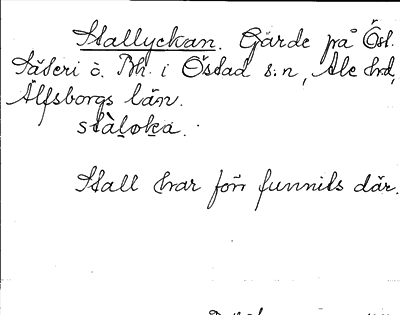 Stallyckan. Gärde på Öst.
Säteri o. Bh. i Östad s:n, Ale hrd,
Älfsborgs län.
stàl̥øka.
Stall har förr funnits där.